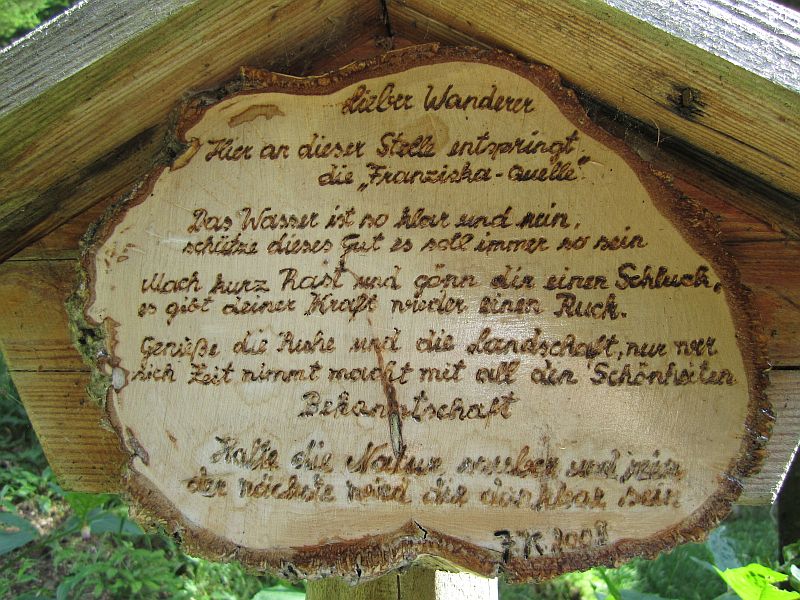 Lieber Wanderer
Hier an dieser Stelle entspringt
die „Franziska-Quelle“.
Das Wasser ist so klar und rein,
schütze dieses Gut es soll immer so sein
Mach kurz Rast und gönn dir einen Schluck,
es gibt deiner Kraft wieder einen Ruck.
Genieße die Ruhe und die Landschaft, nur wer
sich Zeit nimmt macht mit all den Schönheiten
Bekanntschaft
Halte die Natur sauber und rein
der nächste wird dir dankbar sein